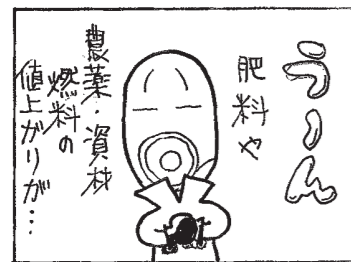 うーん
肥料や
農薬・資材
燃料の
値上がりが…